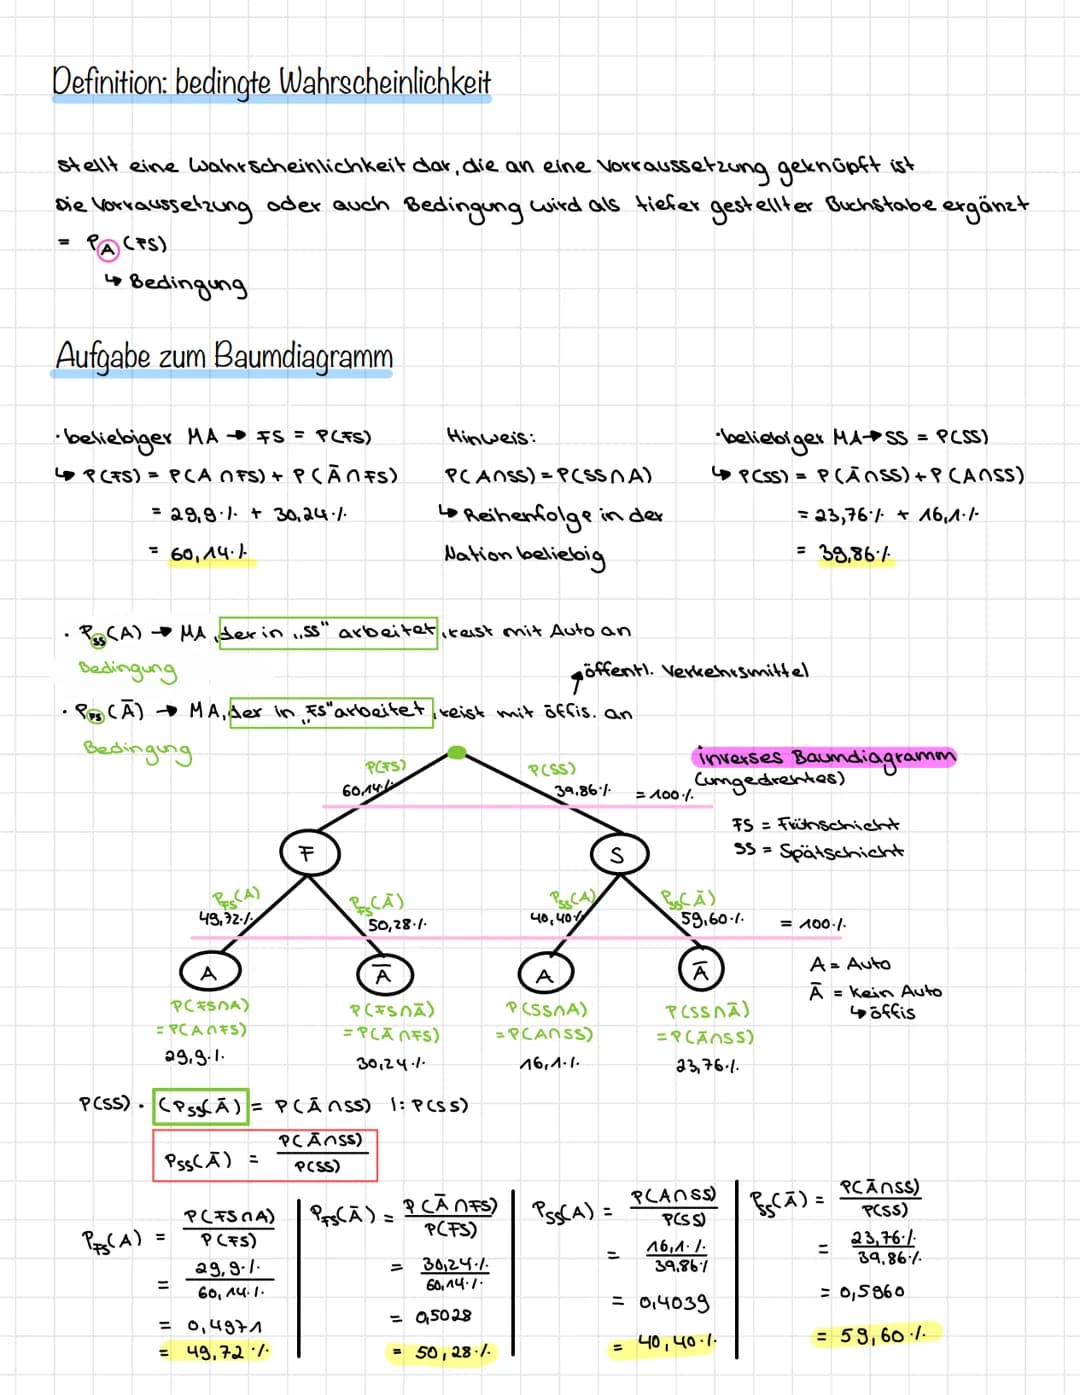 Definition: bedingte Wahrscheinlichkeit
stellt eine Wahrscheinlichkeit dar, die an eine Vorraussetzung geknüpft ist
Die Vorraussetzung oder auch Bedingung wird als tiefer gestellter Buchstabe ergänzt
= P_A (FS)
↳ Bedingung
Aufgabe zum Baumdiagramm
· beliebiger MA → FS = P(FS)
↳ P(FS) = P(A ∩ FS) + P(Ā ∩ FS)
= 29,9 % + 30,24 %
= 60,14 %
Hinweis:
P(A∩SS) = P(SS∩A)
↳ Reihenfolge in der
Nation beliebig
· beliebiger MA → SS = P(SS)
↳ P(SS) = P(Ā∩SS) + P(A∩SS)
= 23,76 % + 16,1 %
= 39,86 %
· P_SS(A) → MA, der in „SS" arbeitet, reist mit Auto an
Bedingung
öffentl. Verkehrsmittel
· P_FS(Ā) → MA, der in „FS" arbeitet, reist mit öffis. an
Bedingung
inverses Baumdiagramm
(umgedrehtes)
P(FS)
60,14 %
P(SS)
39,86 %
= 100 %
FS = Frühschicht
SS = Spätschicht
F
S
P_FS(A)
49,72 %
P_FS(Ā)
50,28 %
P_SS(A)
40,40 %
P_SS(Ā)
59,60 %
= 100 %
A
Ā
A
Ā
A = Auto
Ā = kein Auto
↳ öffis
P(FS∩A)
= P(A∩FS)
29,9 %
P(FS∩Ā)
= P(Ā∩FS)
30,24 %
P(SS∩A)
= P(A∩SS)
16,1 %
P(SS∩Ā)
= P(Ā∩SS)
23,76 %
P(SS) · (P_SS(Ā) = P(Ā∩SS) |: P(SS)
P_SS(Ā) = P(Ā∩SS) / P(SS)
P_FS(A) = P(FS∩A) / P(FS)
= 29,9 % / 60,14 %
= 0,4971
= 49,72 %
P_FS(Ā) = P(Ā∩FS) / P(FS)
= 30,24 % / 60,14 %
= 0,5028
= 50,28 %
P_SS(A) = P(A∩SS) / P(SS)
= 16,1 % / 39,86 %
= 0,4039
= 40,40 %
P_SS(Ā) = P(Ā∩SS) / P(SS)
= 23,76 % / 39,86 %
= 0,5960
= 59,60 %